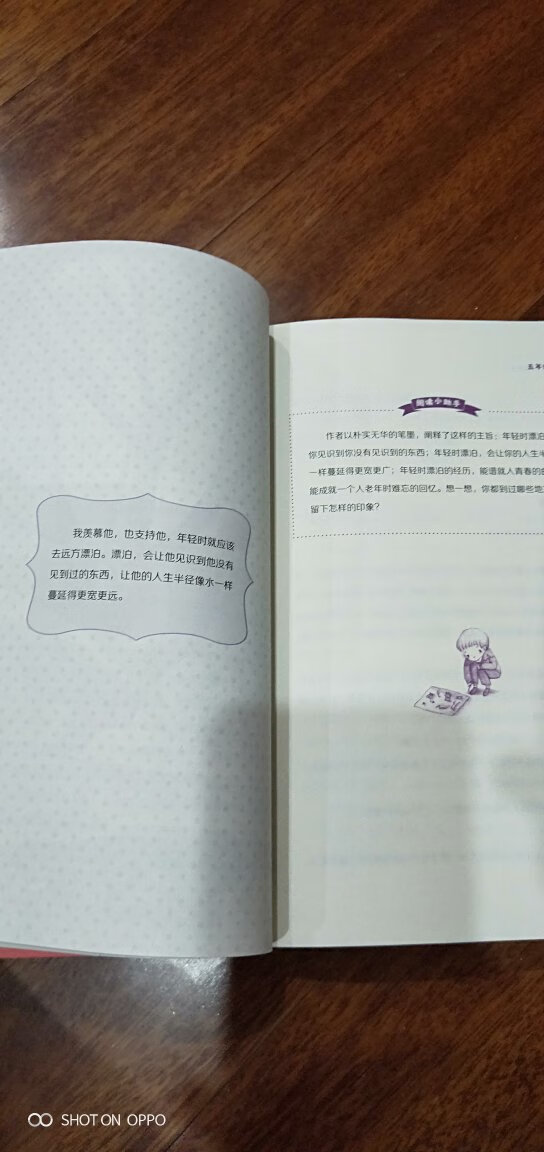 我羡慕他，也支持他，年轻时就应该
去远方漂泊。漂泊，会让他见识到他没有
见到过的东西，让他的人生半径像水一样
蔓延得更宽更远。
五年
阅读小助手
作者以朴实无华的笔墨，阐释了这样的主旨：年轻时漂泊
你见识到你没有见识到的东西；年轻时漂泊，会让你的人生半
一样蔓延得更宽更广；年轻时漂泊的经历，能谱就人青春的
能成就一个人老年时难忘的回忆。想一想，你都到过哪些地
留下怎样的印象？
SHOT ON OPPO